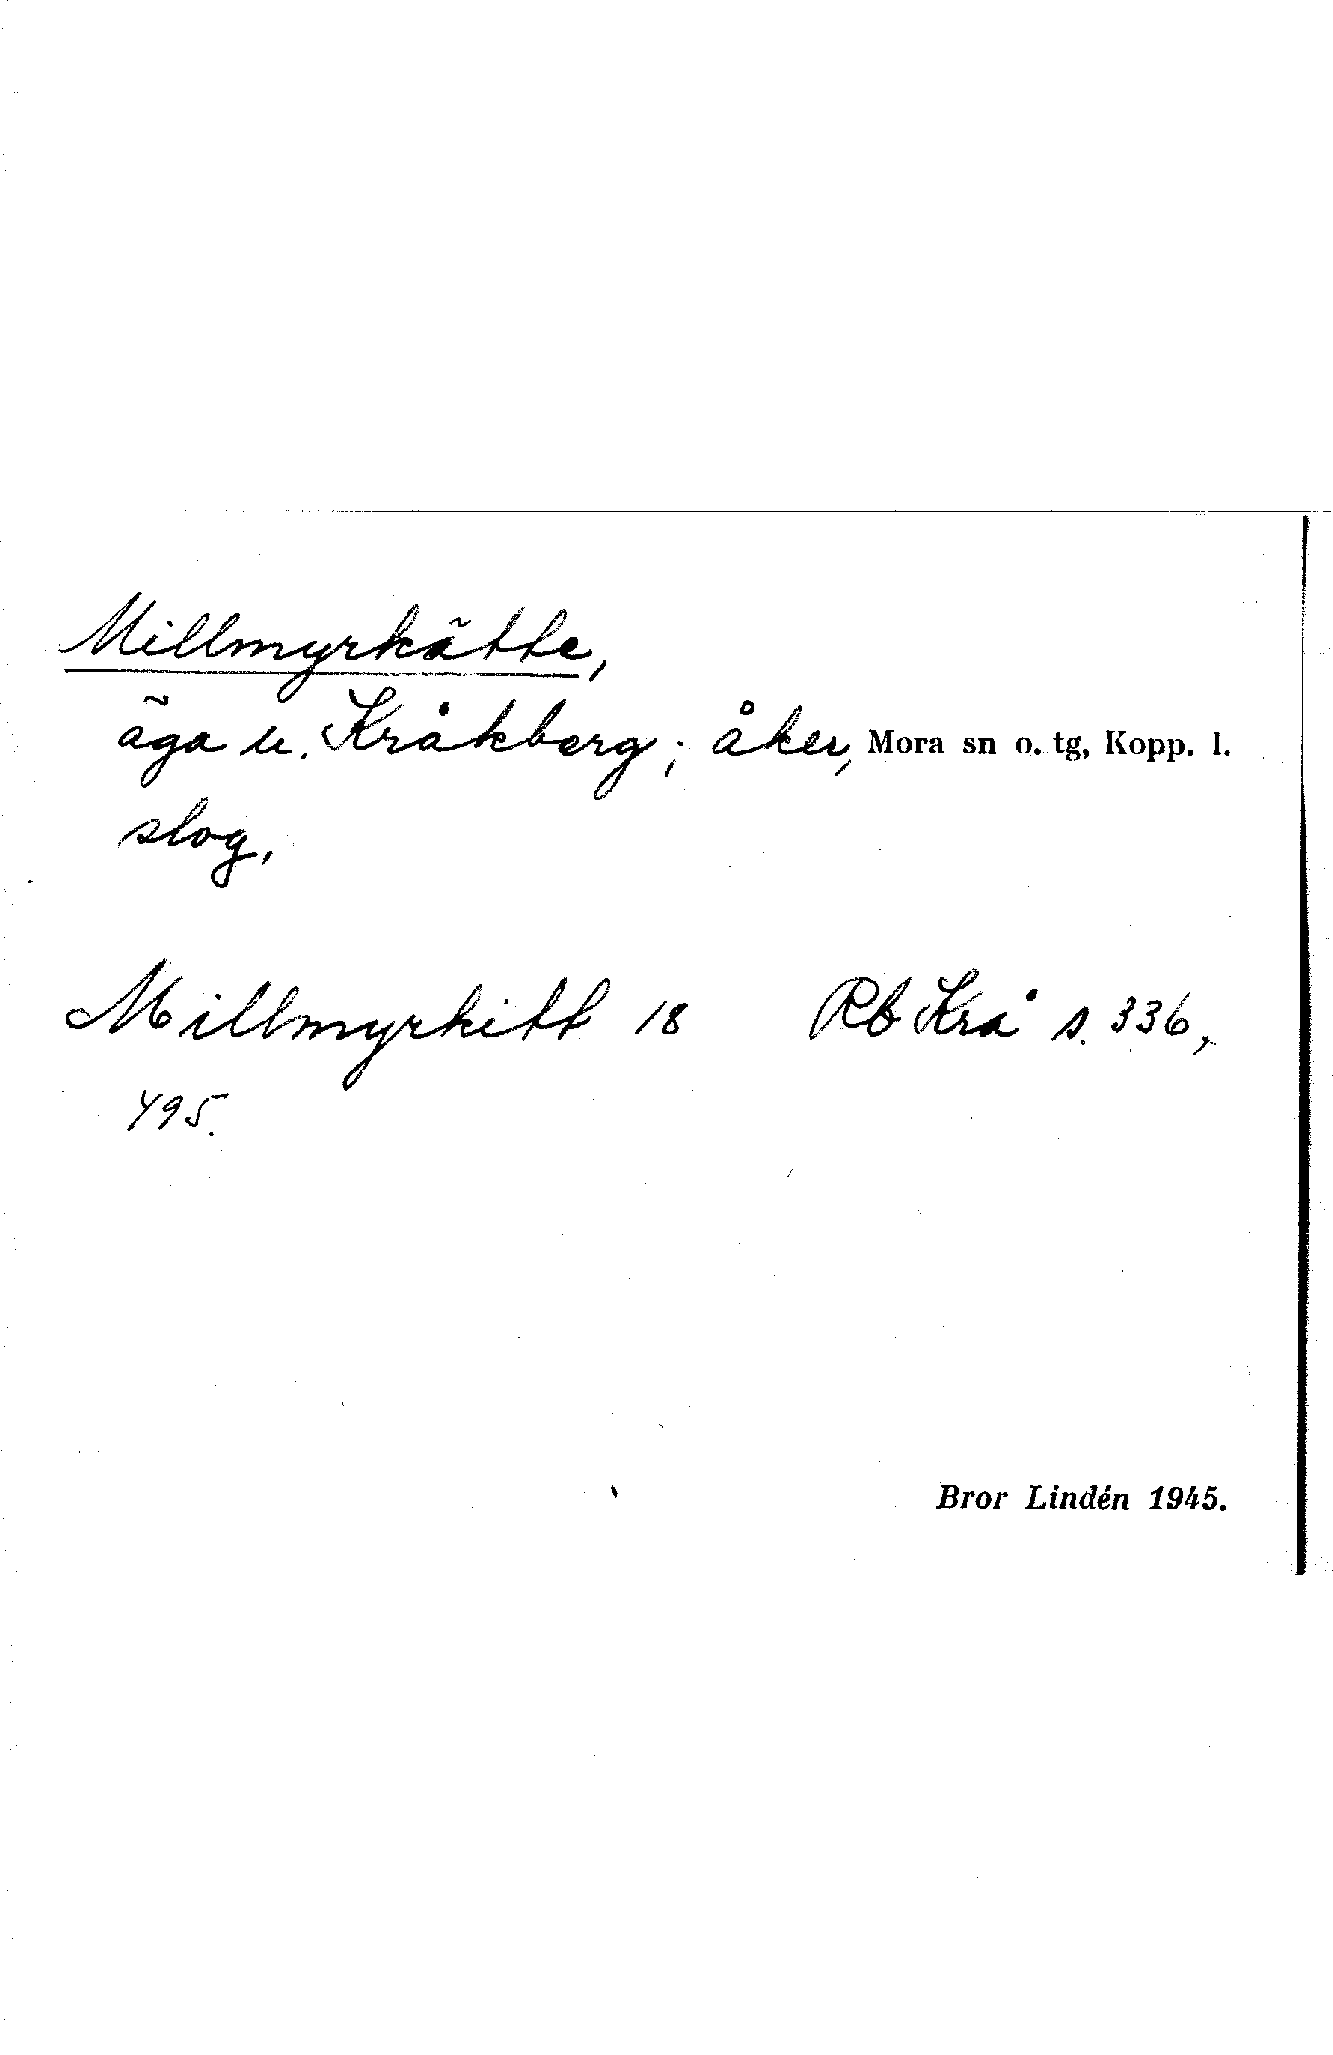 Millmyrkätte,
äga u. Kråkberg; åker, Mora sn o. tg, Kopp. l.
slog,
Millmyrkitt 18 Rb Krå s. 336,
495.
Bror Lindén 1945.